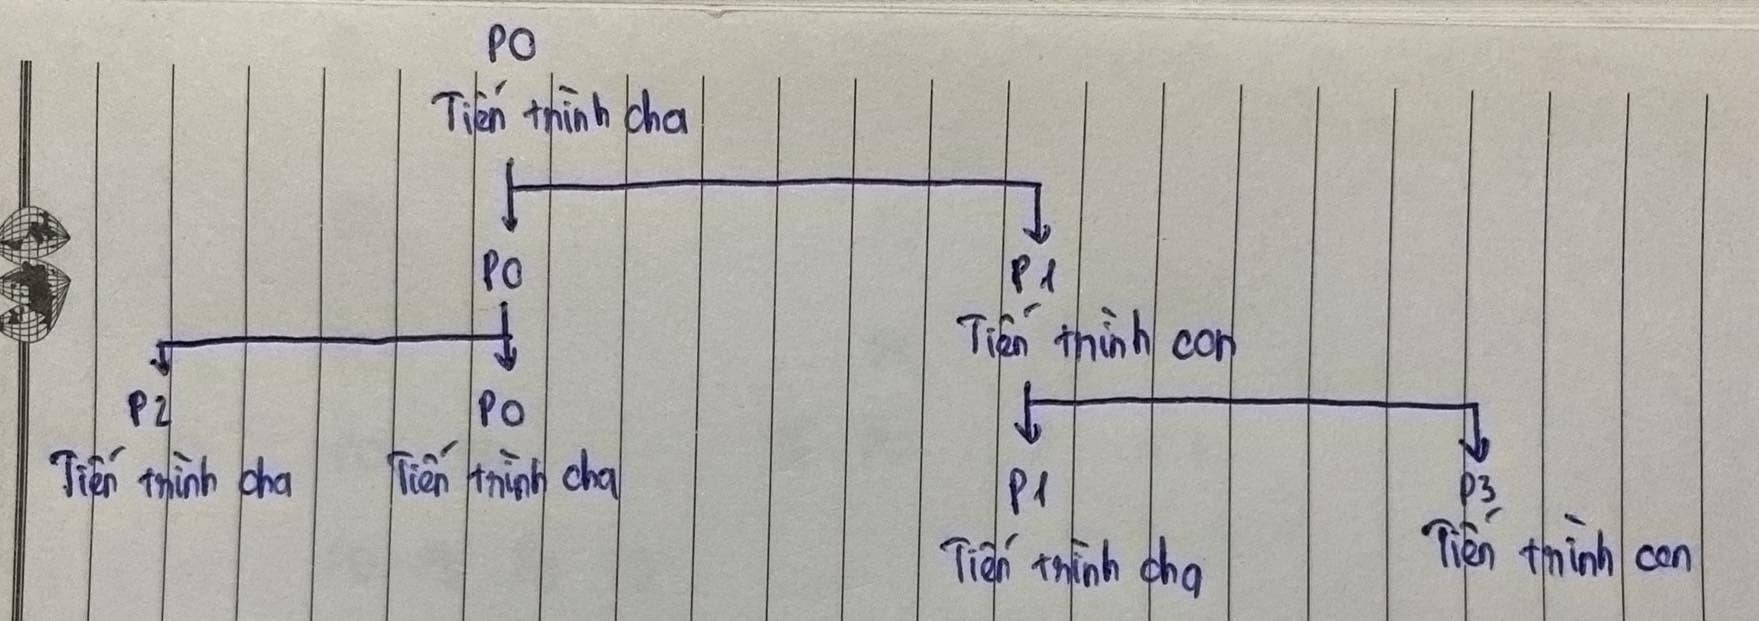 P0
Tiến trình cha
P0
P1
Tiến trình con
P2
P0
Tiến trình cha
Tiến trình cha
P1
P3
Tiến trình cha
Tiến trình con